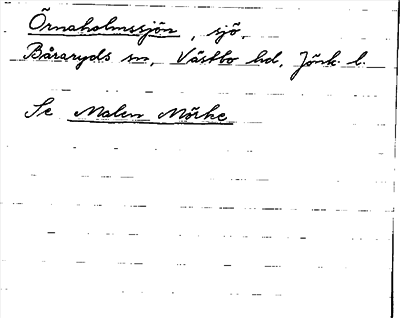 Örnaholmssjön, sjö,
Båraryds sn, Västbo hd, Jönk. l.
Se Malen Mörke